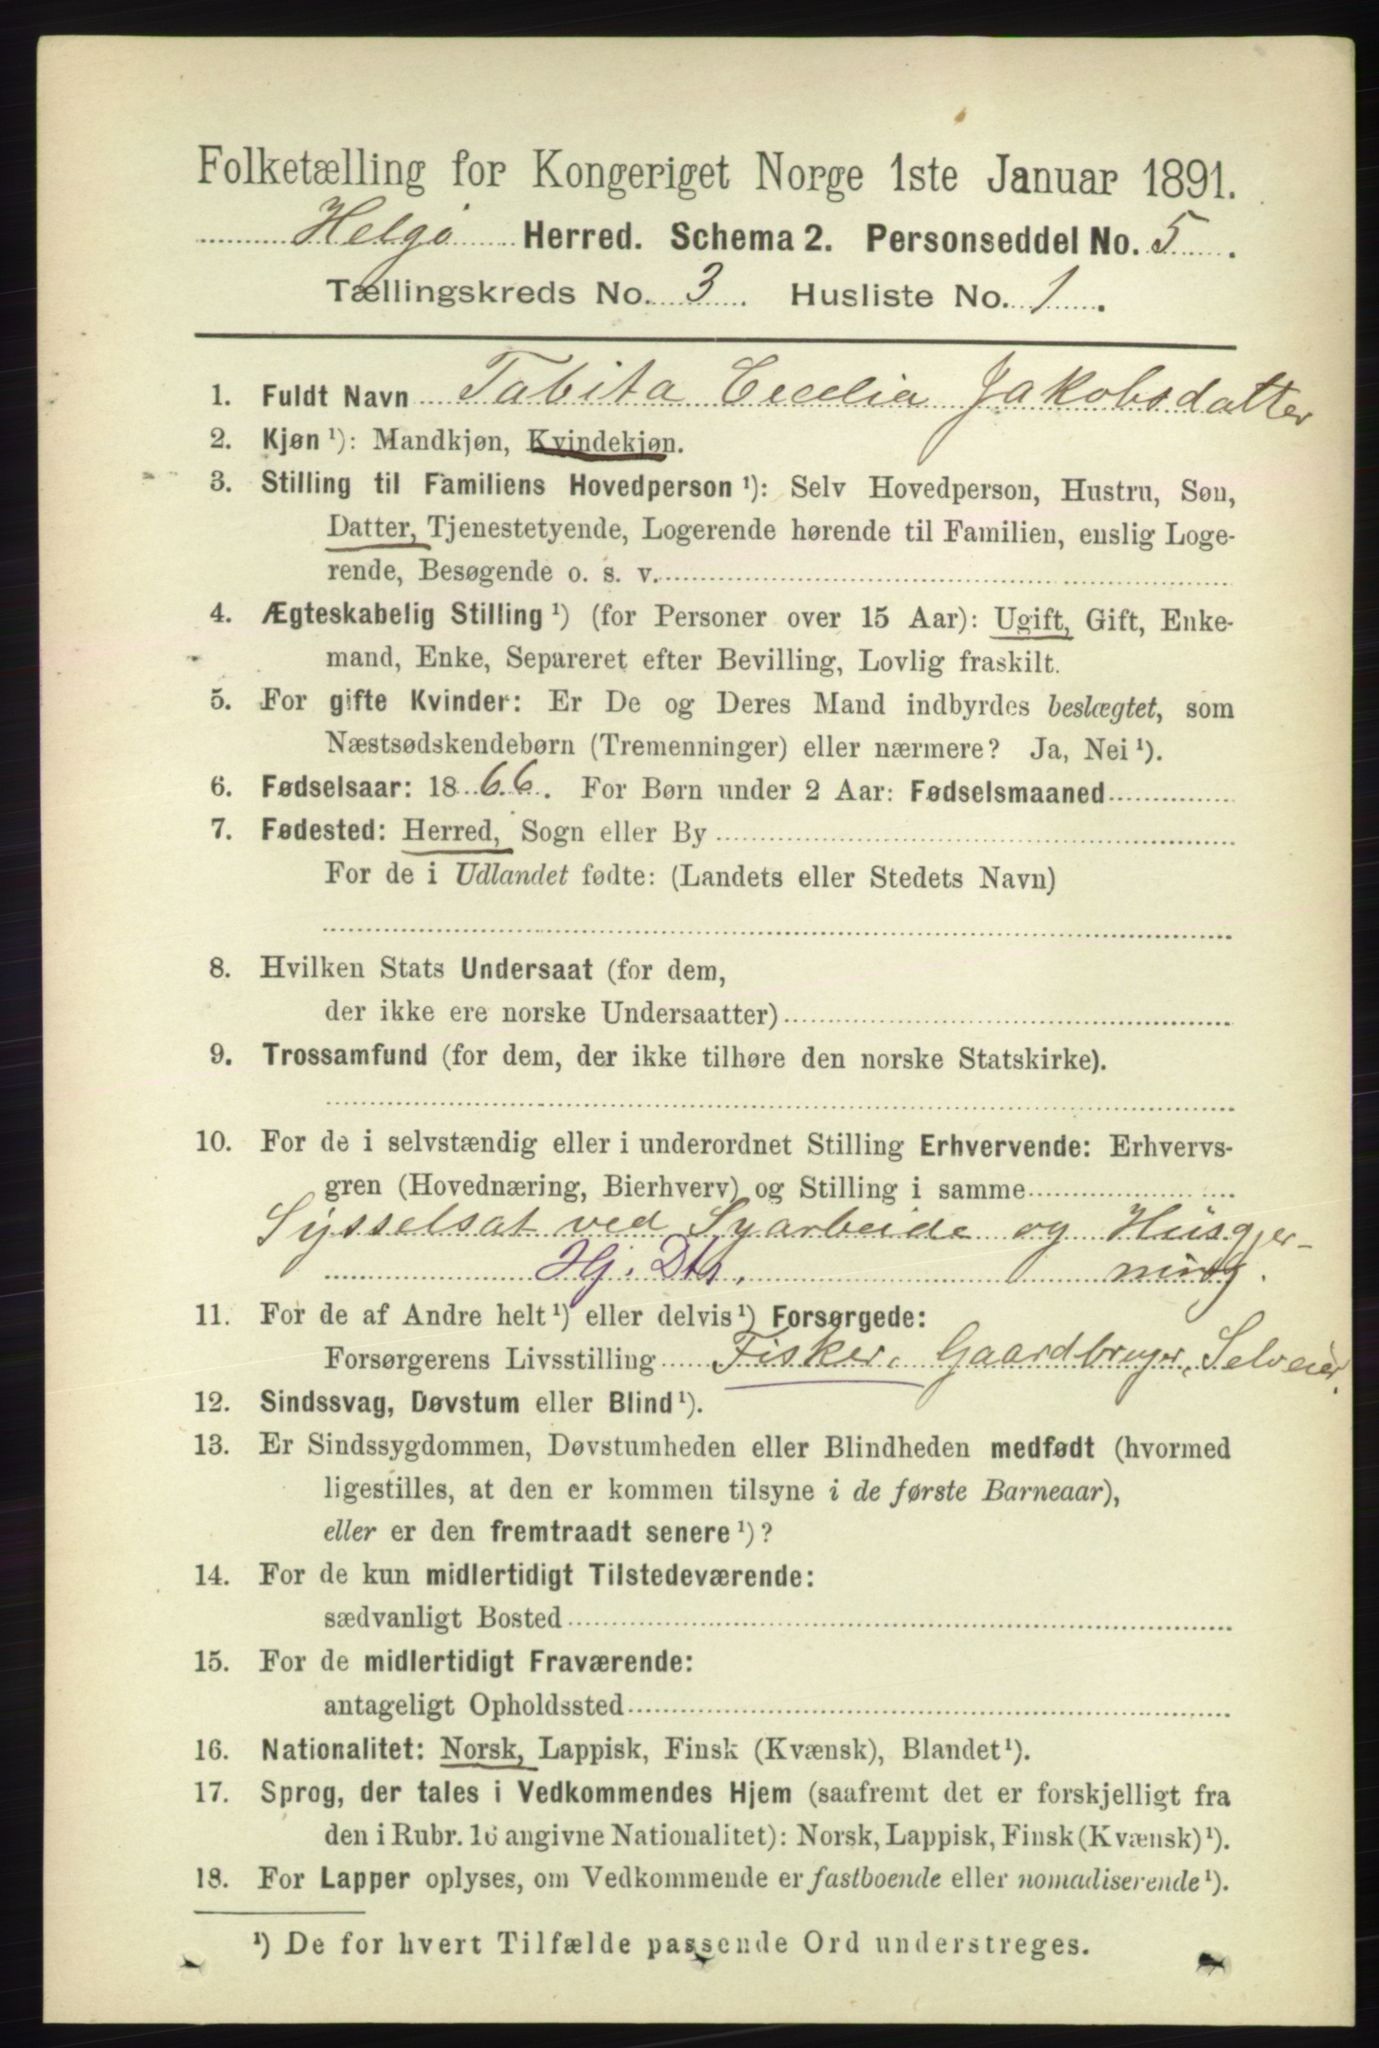 Folketælling for Kongeriget Norge 1ste Januar 1891.
Helgö Herred. Schema 2. Personseddel No. 5.
Tællingskreds No. 3. Husliste No. 1.
1. Fuldt Navn Tabita Cecelia Jakobsdatter
2. Kjøn ¹): Mandkjøn, Kvindekjøn.
3. Stilling til Familiens Hovedperson ¹): Selv Hovedperson, Hustru, Søn,
Datter, Tjenestetyende, Logerende hørende til Familien, enslig Loge-
rende, Besøgende o. s. v.
4. Ægteskabelig Stilling ¹) (for Personer over 15 Aar): Ugift, Gift, Enke-
mand, Enke, Separeret efter Bevilling, Lovlig fraskilt.
5. For gifte Kvinder: Er De og Deres Mand indbyrdes beslægtet, som
Næstsødskendebørn (Tremenninger) eller nærmere? Ja, Nei ¹).
6. Fødselsaar: 1866. For Børn under 2 Aar: Fødselsmaaned
7. Fødested: Herred, Sogn eller By
For de i Udlandet fødte: (Landets eller Stedets Navn)
8. Hvilken Stats Undersaat (for dem,
der ikke ere norske Undersaatter)
9. Trossamfund (for dem, der ikke tilhøre den norske Statskirke).
10. For de i selvstændig eller i underordnet Stilling Erhvervende: Erhvervs-
gren (Hovednæring, Bierhverv) og Stilling i samme
Sysselsat ved Syarbeide og Husgjer-
Hj. Dtr. ning.
11. For de af Andre helt ¹) eller delvis ¹) Forsørgede:
Forsørgerens Livsstilling Fisker, Gaardbruger, Selveier.
12. Sindssvag, Døvstum eller Blind ¹).
13. Er Sindssygdommen, Døvstumheden eller Blindheden medfødt (hvormed
ligestilles, at den er kommen tilsyne i de første Barneaar),
eller er den fremtraadt senere ¹)?
14. For de kun midlertidigt Tilstedeværende:
sædvanligt Bosted
15. For de midlertidigt Fraværende:
antageligt Opholdssted
16. Nationalitet: Norsk, Lappisk, Finsk (Kvænsk), Blandet ¹).
17. Sprog, der tales i Vedkommendes Hjem (saafremt det er forskjelligt fra
den i Rubr. 16 angivne Nationalitet): Norsk, Lappisk, Finsk (Kvænsk) ¹).
18. For Lapper oplyses, om Vedkommende er fastboende eller nomadiserende ¹).
¹) De for hvert Tilfælde passende Ord understreges.